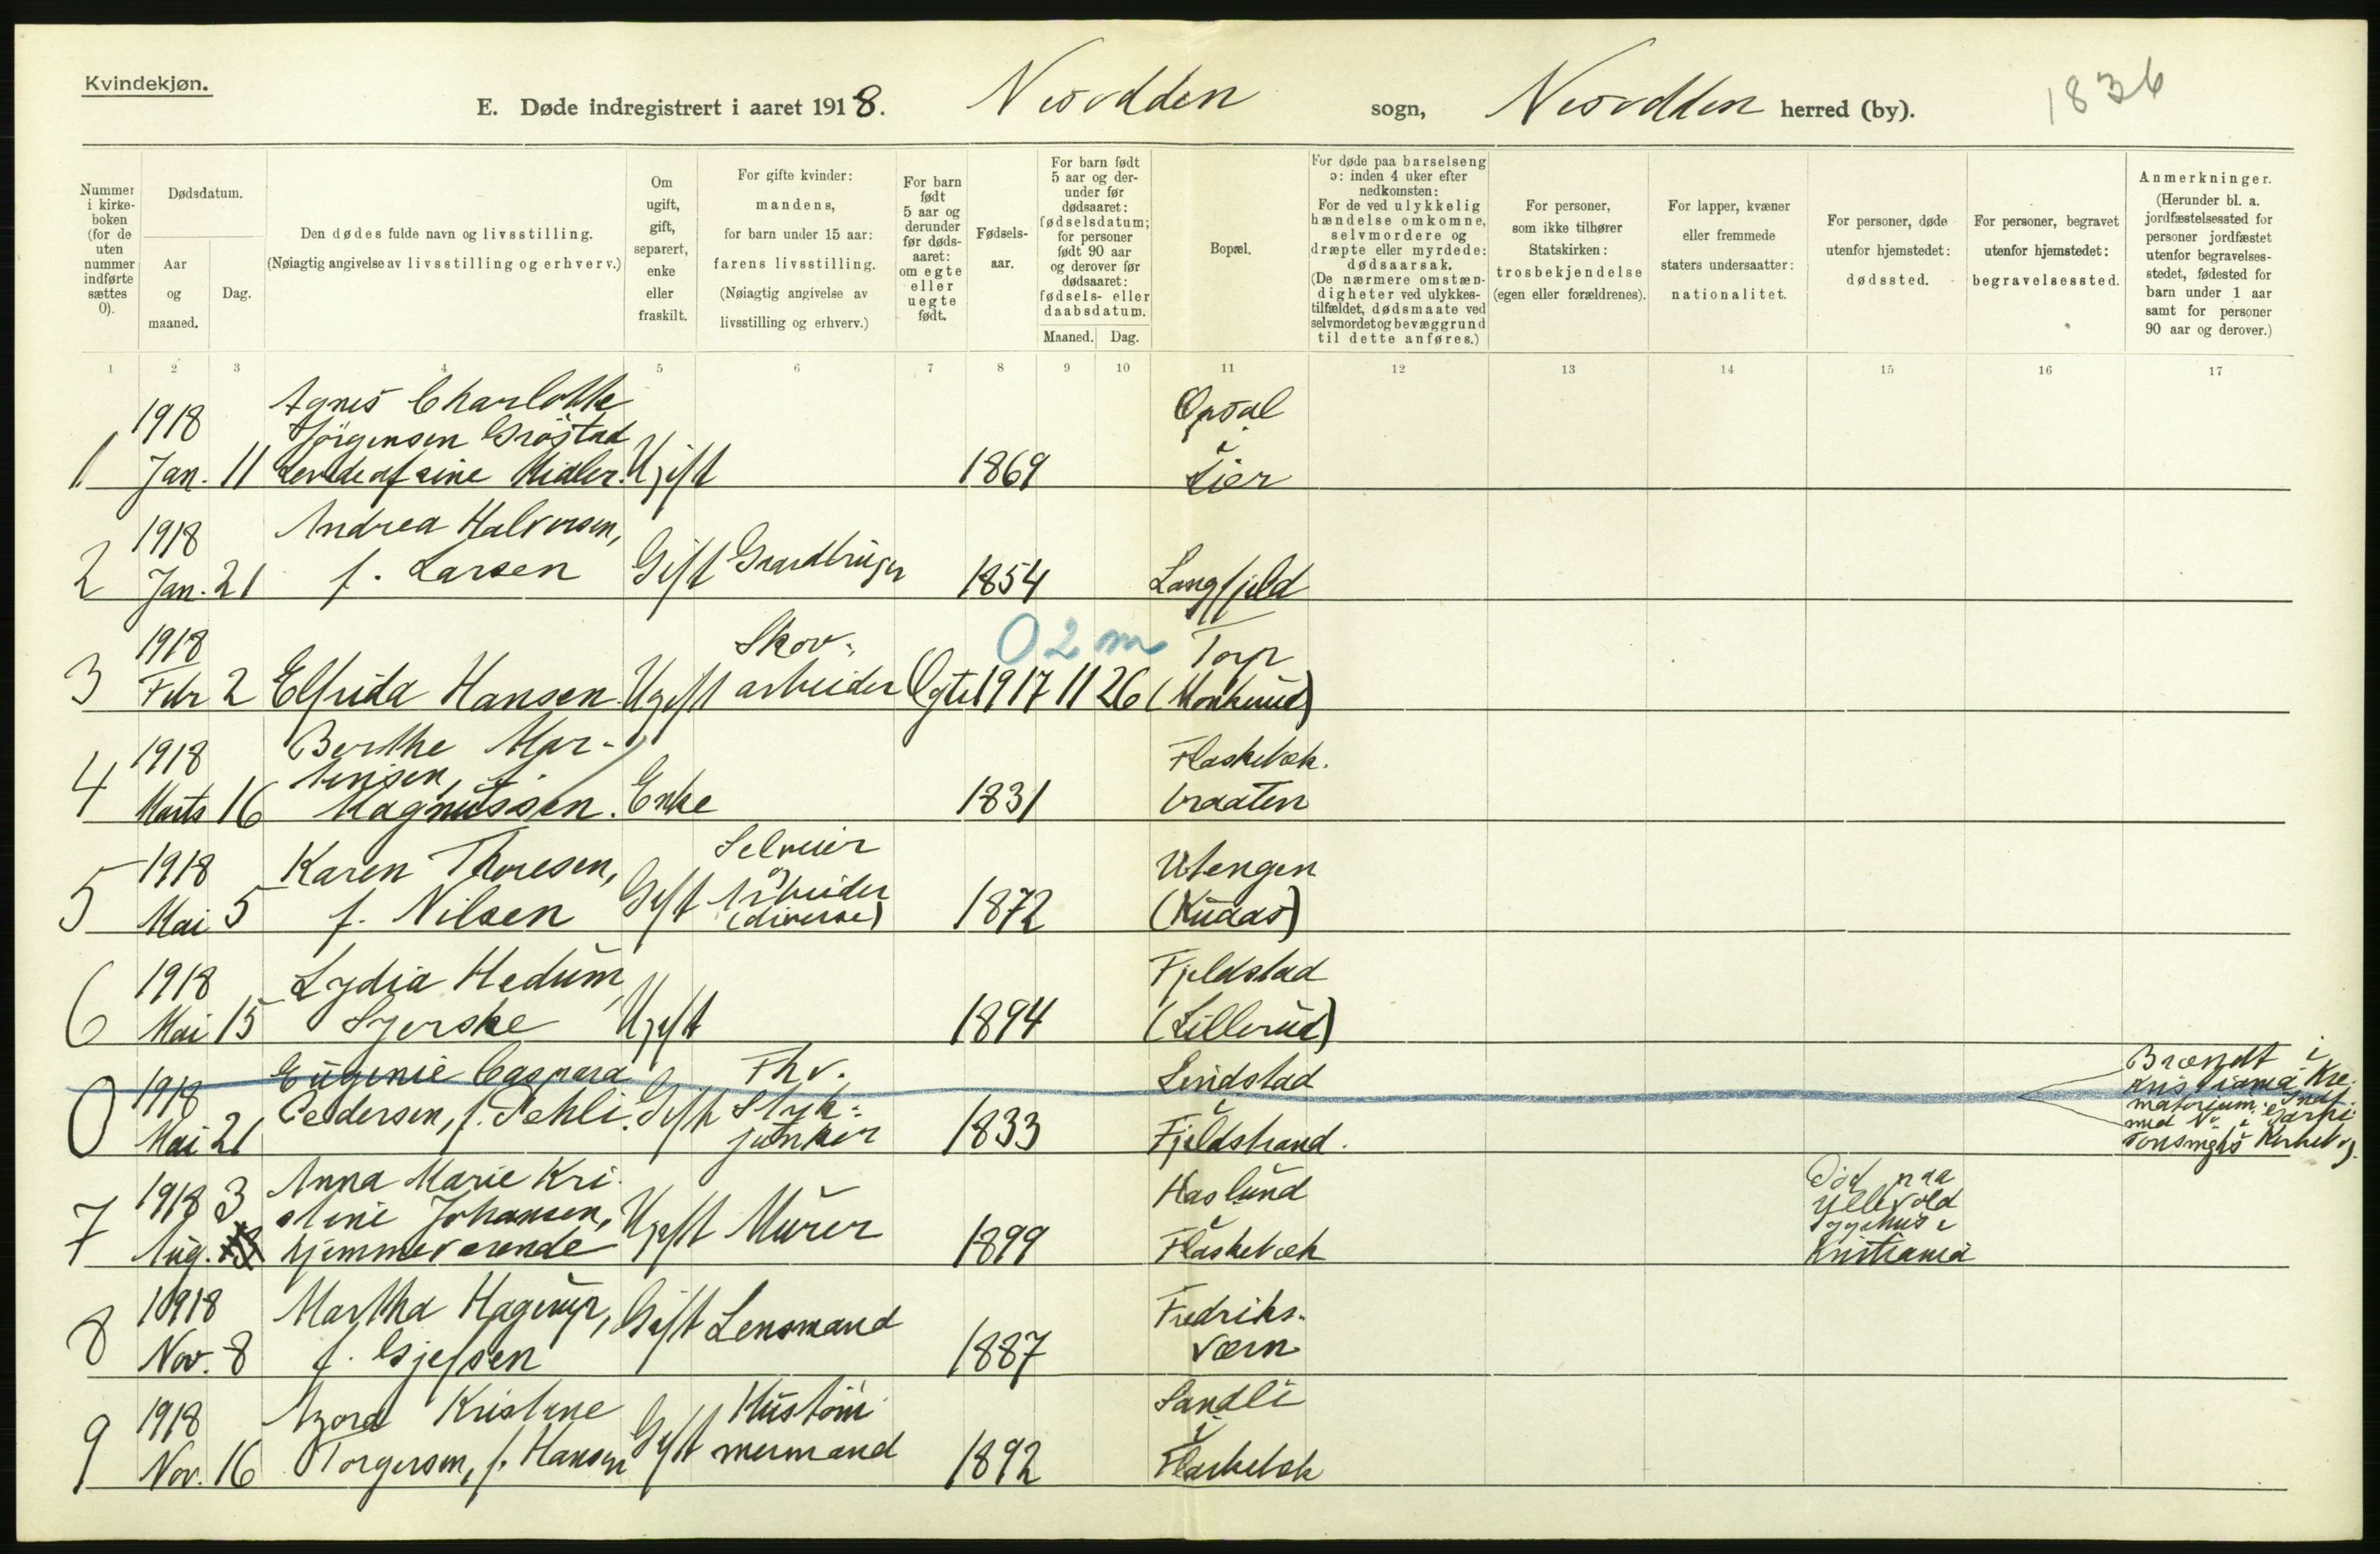 Kvindekjøn.
E. Døde indregistrert i aaret 1918. Nesodden sogn, Nesodden herred (by). 1836
Nummer i kirkeboken (for de uten nummer indførte sættes 0).
Dødsdatum.
Aar og maaned.
Dag.
Den dødes fulde navn og livsstilling.
(Nøiagtig angivelse av livsstilling og erhverv.)
Om ugift, gift, separert, enke eller fraskilt.
For gifte kvinder: mandens, for barn under 15 aar: farens livsstilling. (Nøiagtig angivelse av livsstilling og erhverv.)
For barn født 5 aar og derunder før dødsaaret: om egte eller uegte født.
Fødselsaar.
For barn født 5 aar og derunder før dødsaaret: fødselsdatum; for personer født 90 aar og derover før dødsaaret: fødsels- eller daabsdatum.
Maaned. Dag.
Bopæl.
For døde paa barselseng ɔ: inden 4 uker efter nedkomsten: For de ved ulykkelig hændelse omkomne, selvmordere og dræpte eller myrdede: dødsaarsak. (De nærmere omstændigheter ved ulykkestilfældet, dødsmaate ved selvmordet og bevæggrund til dette anføres.)
For personer, som ikke tilhører Statskirken: trosbekjendelse (egen eller forældrenes).
For lapper, kvæner eller fremmede staters undersaatter: nationalitet.
For personer, døde utenfor hjemstedet: dødssted.
For personer, begravet utenfor hjemstedet: begravelsessted.
Anmerkninger. (Herunder bl. a. jordfæstelsessted for personer jordfæstet utenfor begravelsesstedet, fødested for barn under 1 aar samt for personer 90 aar og derover.)
1 2 3 4 5 6 7 8 9 10 11 12 13 14 15 16 17
1918 Agnes Charlotte Opsal
Jørgensen Grøstad i
1 Jan. 11 Levde af sine Midler. Ugift 1869 Lier
1918 Andrea Halvorsen,
2 Jan. 21 f. Larsen Gift Gaardbruger 1854 Langfjeld
1918 Skov- 0 2 m Torp
3 Febr 2 Elfrida Hansen. Ugift arbeider Egte 1917 11 26 (Monkerud)
1918 Berthe Mar- Flaskebæk.
tensen, f.
4 Marts 16 Magnussen. Enke 1831 braaten
1918 Karen Thoresen, Selveier Utengen
og
5 Mai 5 f. Nilsen Gift Arbeider (diverse) 1872 (Kuaas)
1918 Lydia Hedum, Fjeldstad
6 Mai 15 Syerske Ugift 1894 (Lillerud)
1918 Eugenie Caspara Fhv. Lindstad Brændt i
Pedersen, f. Pehli. Gift Styk- i Kristiania Kre-
0 Mai 21 junker 1833 Fjeldstrand. matorium.
med No.
1918 3 Anna Marie Kri- Haslund Død paa
stine Johansen, Ugift Murer i Ullevold
7 Aug. hjemmeværende 1899 Flaskebæk Sygehus i
Kristiania
1918 Martha Hagerup, Gift Lensmand Fredriks-
8 Nov. 8 f. Gjessen 1887 værn
1918 Azora Kristine Hustøm- Sandli
i
9 Nov. 16 Torgersen, f. Hansen Gift mermand 1892 Flaskebæk